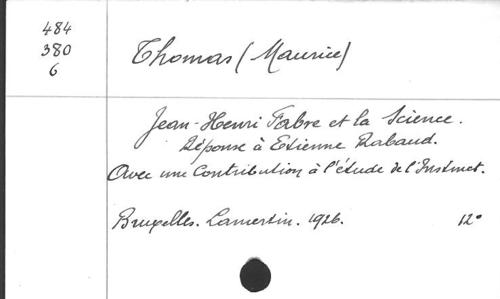 484
380
6
Thomas (Maurice)
Jean-Henri Fabre et la Science.
Réponse à Etienne Rabaud.
Avec une Contribution à l'étude de l'Instinct.
Bruxelles. Lamertin. 1926. 12°